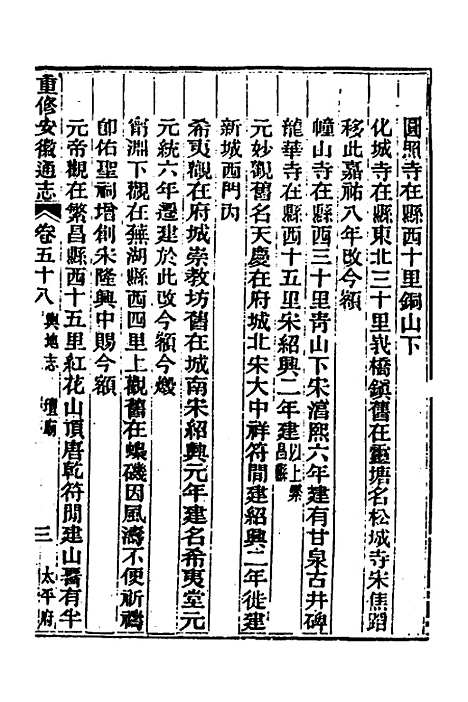 圓照寺在縣西十里銅山下
化城寺在縣東北三十里峩橋鎮舊在靈塘名松城寺朱焦蹈
移此嘉祐八年改今額
幢山寺在縣西三十里青山下宋淳熙六年建有甘泉古井碑
龍華寺在縣西十五里宋紹興二年建以上繁昌縣
元妙觀舊名天慶在府城北宋大中祥符間建紹興二年徙建
新城西門內
希夷觀在府城崇教坊舊在城南宋紹興元年建名希夷堂元
元統六年遷建於此改今額今燬
甯淵下觀在蕪湖縣西四里上觀舊在蟂磯因風濤不便祈禱
卽佑聖祠增創宋隆興中賜今額
元帝觀在繁昌縣西十五里紅花山頂唐乾符間建山層有半
重修安徽通志 卷五十八 輿地志 壇廟 三 太平府